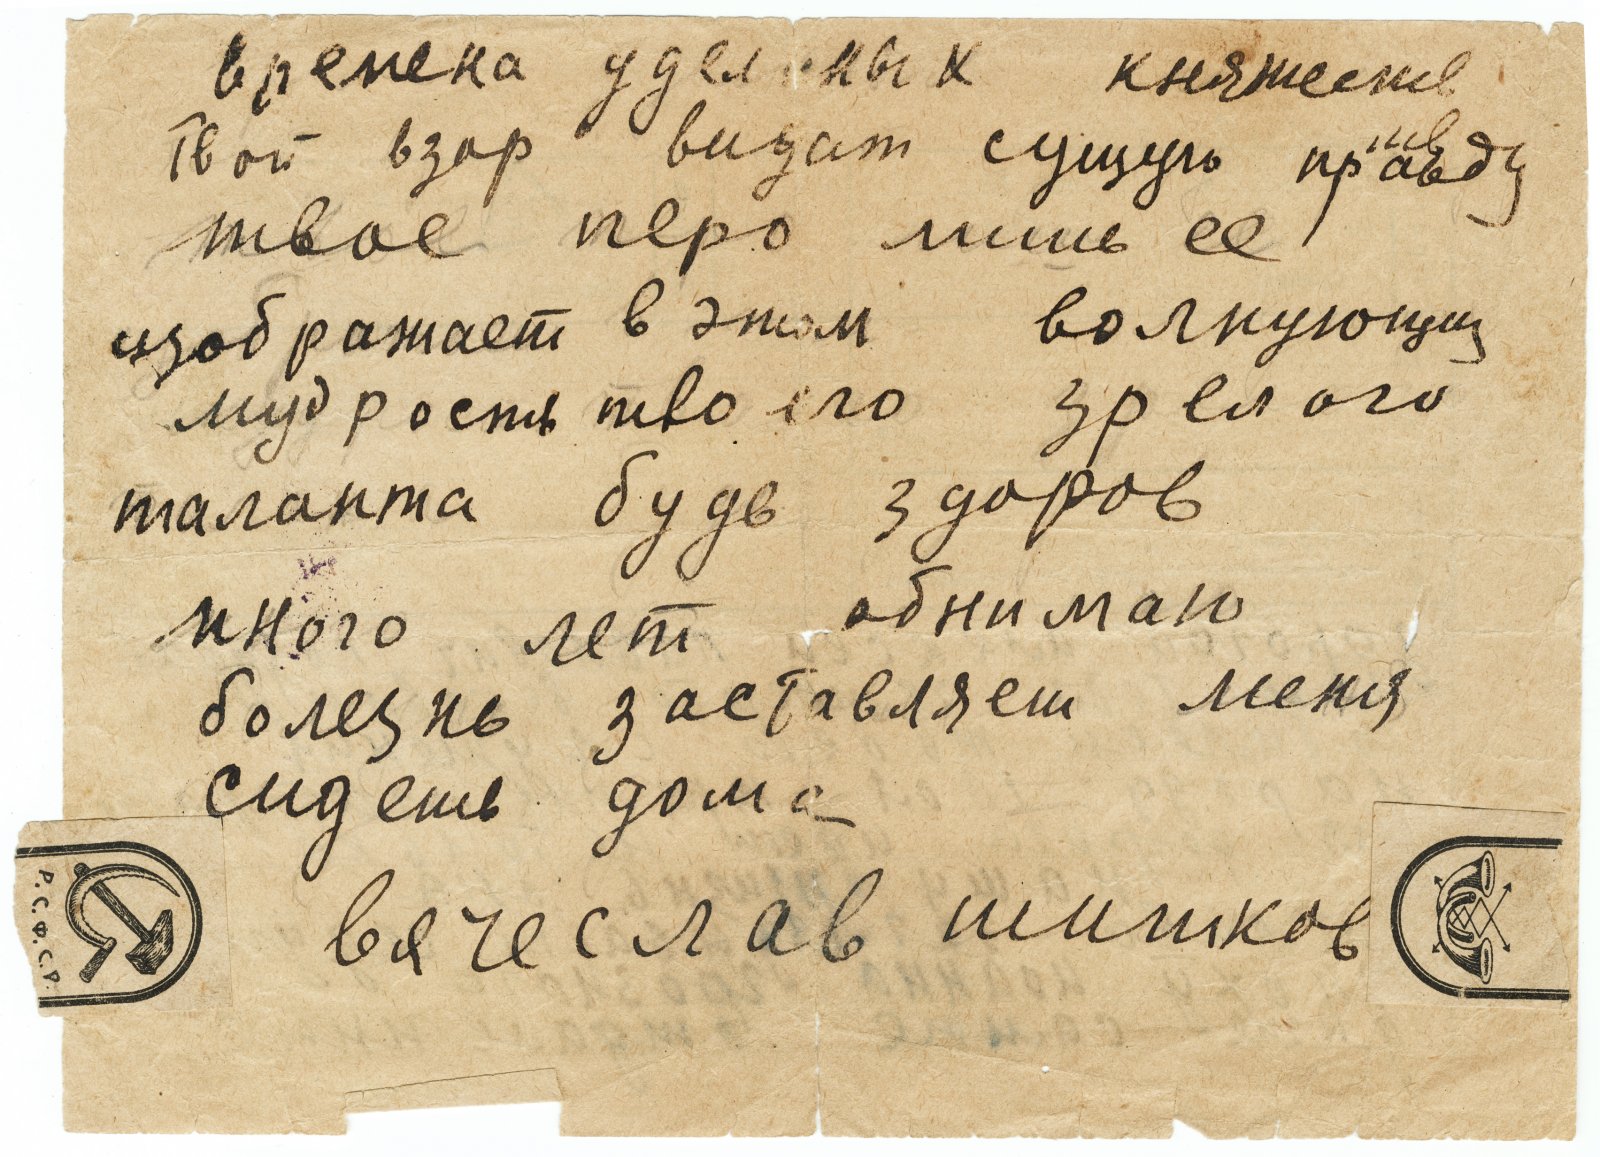 времена удельных княжеств
Твой взор видат сущую правду
твое перо лишь ее
изображает в этом волнующы
мудрость твоего зрелого
таланта будь здоров
много лет обнимаю
болезнь заставляет меня
сидеть дома
вячеслав шишков
Р.С.Ф.С.Р.